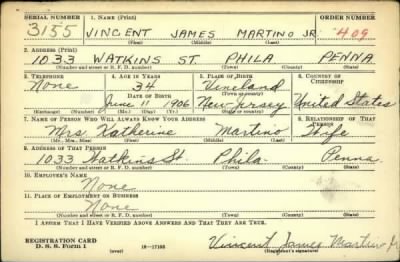 SERIAL NUMBER 1. NAME (Print) ORDER NUMBER
3155 VINCENT JAMES MARTINO JR. 409
(First) (Middle) (Last)
2. ADDRESS (Print)
1033 WATKINS ST. PHILA PENNA
(Number and street or R. F. D. number) (Town) (County) (State)
3. TELEPHONE 4. AGE IN YEARS 5. PLACE OF BIRTH 6. COUNTRY OF CITIZENSHIP
None 34 Vineland
DATE OF BIRTH (Town or county)
June 11 1906 New Jersey United States
(Exchange) (Number) (Mo.) (Day) (Yr.) (State or country)
7. NAME OF PERSON WHO WILL ALWAYS KNOW YOUR ADDRESS 8. RELATIONSHIP OF THAT PERSON
Mrs. Katherine Martino Wife
(Mr., Mrs., Miss) (First) (Middle) (Last)
9. ADDRESS OF THAT PERSON
1033 Watkins St. Phila. Penna.
(Number and street or R. F. D. number) (Town) (County) (State)
10. EMPLOYER'S NAME
None
11. PLACE OF EMPLOYMENT OR BUSINESS
None
(Number and street or R. F. D. number) (Town) (County) (State)
I AFFIRM THAT I HAVE VERIFIED ABOVE ANSWERS AND THAT THEY ARE TRUE.
REGISTRATION CARD
D. S. S. Form 1 (over) 16—17105 Vincent James Martino Jr.
(Registrant's signature)